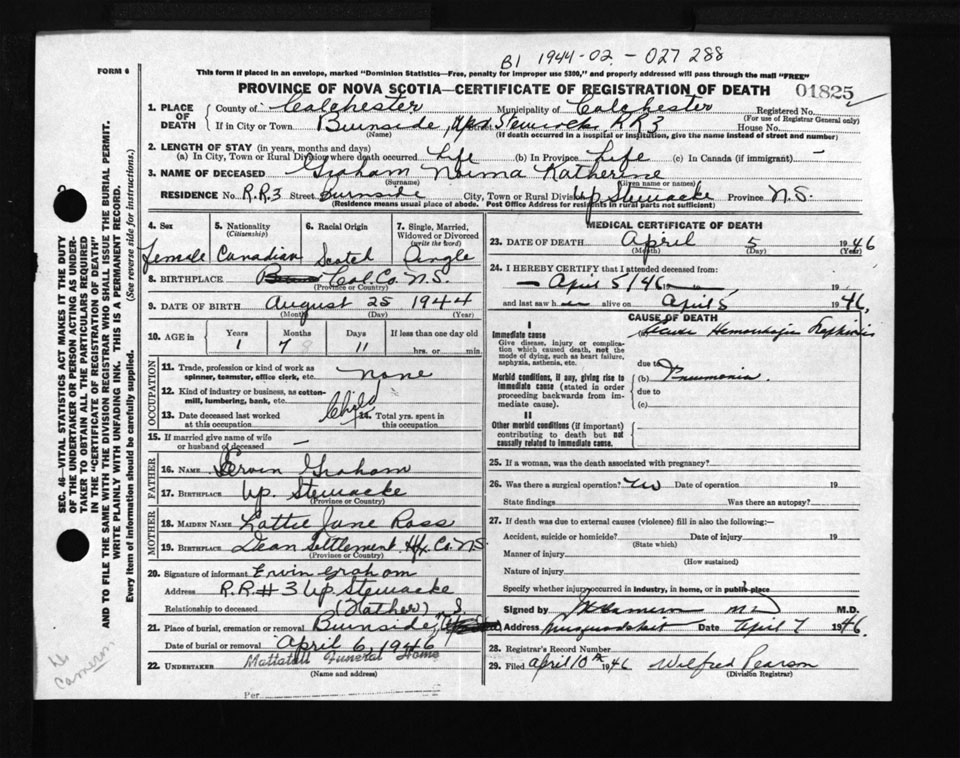 B1 1944-02-027288
FORM 6
This form if placed in an envelope, marked "Dominion Statistics—Free, penalty for improper use $300," and properly addressed will pass through the mail "FREE"
PROVINCE OF NOVA SCOTIA—CERTIFICATE OF REGISTRATION OF DEATH
01825
1. PLACE OF DEATH County of Colchester Municipality of Colchester Registered No.
(For use of Registrar General only)
If in City or Town Burnside, Up. Stewiacke RR3 House No.
(Name) (If death occurred in a hospital or institution, give the name instead of street and number)
2. LENGTH OF STAY (in years, months and days)
(a) In City, Town or Rural Division where death occurred Life (b) In Province Life (c) In Canada (if immigrant) —
3. NAME OF DECEASED Graham Norma Katherine
(Surname) (Given name or names)
RESIDENCE No R.R.3 Street Burnside City, Town or Rural Division Up Stewiacke Province N.S.
(Residence means usual place of abode. Post Office Address for residents in rural parts not sufficient)
4. Sex 5. Nationality 6. Racial Origin 7. Single, Married,
(Citizenship) Widowed or Divorced
(write the word)
Female Canadian Scotch Single
8. BIRTHPLACE Col. Co. N.S.
(Province or Country)
9. DATE OF BIRTH August 25 1944
(Month) (Day) (Year)
10. AGE in Years Months Days If less than one day old
1 7 11 hrs. or min.
OCCUPATION
11. Trade, profession or kind of work as
spinner, teamster, office clerk, etc. none
12. Kind of industry or business, as cotton-
mill, lumbering, bank, etc. Child
13. Date deceased last worked 14. Total yrs. spent in
at this occupation this occupation
15. If married give name of wife
or husband of deceased —
FATHER
16. NAME Ervin Graham
17. BIRTHPLACE Up. Stewiacke
(Province or Country)
MOTHER
18. MAIDEN NAME Lottie Jane Ross
19. BIRTHPLACE Dean Settlement Hfx. Co. N.S.
(Province or Country)
20. Signature of informant Ervin Graham
Address R.R.#3 Up. Stewiacke
Relationship to deceased (Father)
21. Place of burial, cremation or removal Burnside,
Date of burial or removal April 6, 1946
22. UNDERTAKER Mattatall Funeral Home
(Name and address)
Per
MEDICAL CERTIFICATE OF DEATH
23. DATE OF DEATH April 5 1946
(Month) (Day) (Year)
24. I HEREBY CERTIFY that I attended deceased from:
— April 5/46 to 19
and last saw h alive on April 5 1946,
CAUSE OF DEATH
I
Immediate cause
Give disease, injury or complication which caused death, not the mode of dying, such as heart failure, asphyxia, asthenia, etc.
due to
Morbid conditions, if any, giving rise to immediate cause (stated in order proceeding backwards from immediate cause).
(b) Pneumonia.
due to
(c)
II
Other morbid conditions (if important) contributing to death but not causally related to immediate cause.
25. If a woman, was the death associated with pregnancy?
26. Was there a surgical operation? No Date of operation 19
State findings Was there an autopsy?
27. If death was due to external causes (violence) fill in also the following:—
Accident, suicide or homicide? Date of injury 19
(State which)
Manner of injury
(How sustained)
Nature of injury
Specify whether injury occurred in industry, in home, or in public place
Signed by M.D. M.D.
Address Musquodoboit Date April 7 1946.
28. Registrar's Record Number
29. Filed April 10th 1946 Wilfred Pearson
(Division Registrar)
SEC. 46—VITAL STATISTICS ACT MAKES IT THE DUTY
OF THE UNDERTAKER OR PERSON ACTING AS UNDER-
TAKER TO OBTAIN ALL THE PARTICULARS REQUIRED
IN THE "CERTIFICATE OF REGISTRATION OF DEATH"
AND TO FILE THE SAME WITH THE DIVISION REGISTRAR WHO SHALL ISSUE THE BURIAL PERMIT.
WRITE PLAINLY WITH UNFADING INK. THIS IS A PERMANENT RECORD.
Every item of information should be carefully supplied. (See reverse side for instructions.)
Cameron